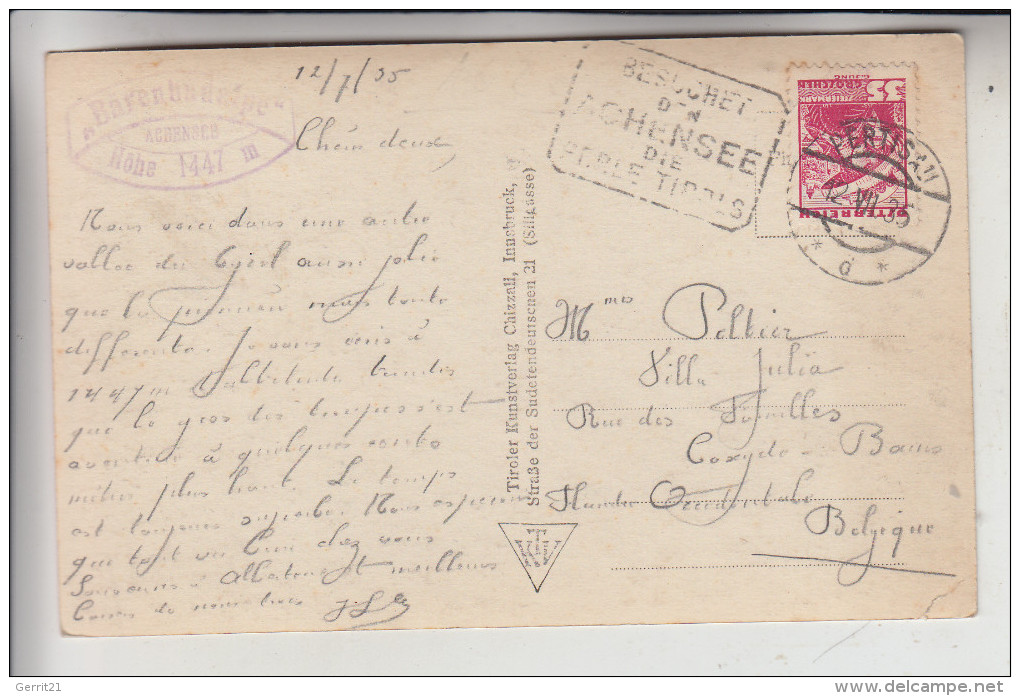 12/7/35
ACHENSEE
Höhe 1447 m
BESUCHET
DEN
ACHENSEE
DIE
PERLE TIROLS
GROSCHEN
STEIERMARK
ÖSTERREICH
PERTISAU
12.VII.35
* d *
Nous voici dans une autre
vallée du Tyrol aussi jolie
que la première mais toute
différente. Je vous écris à
1447 m d'altitude tandis
que le gros des troupes s'est
aventuré à quelques cents
mètres plus haut. Le temps
est toujours superbe. Nous espérons
que tout va bien chez vous
Souvenirs à et meilleurs
Tiroler Kunstverlag Chizzali, Innsbruck,
Straße der Sudetendeutschen 21 (Sillgasse)
Mmes Peltier
Villa Julia
Rue des Familles
Coxyde - Bains
Flandre Occidentale
Belgique
Gerrit21
www.delcampe.net